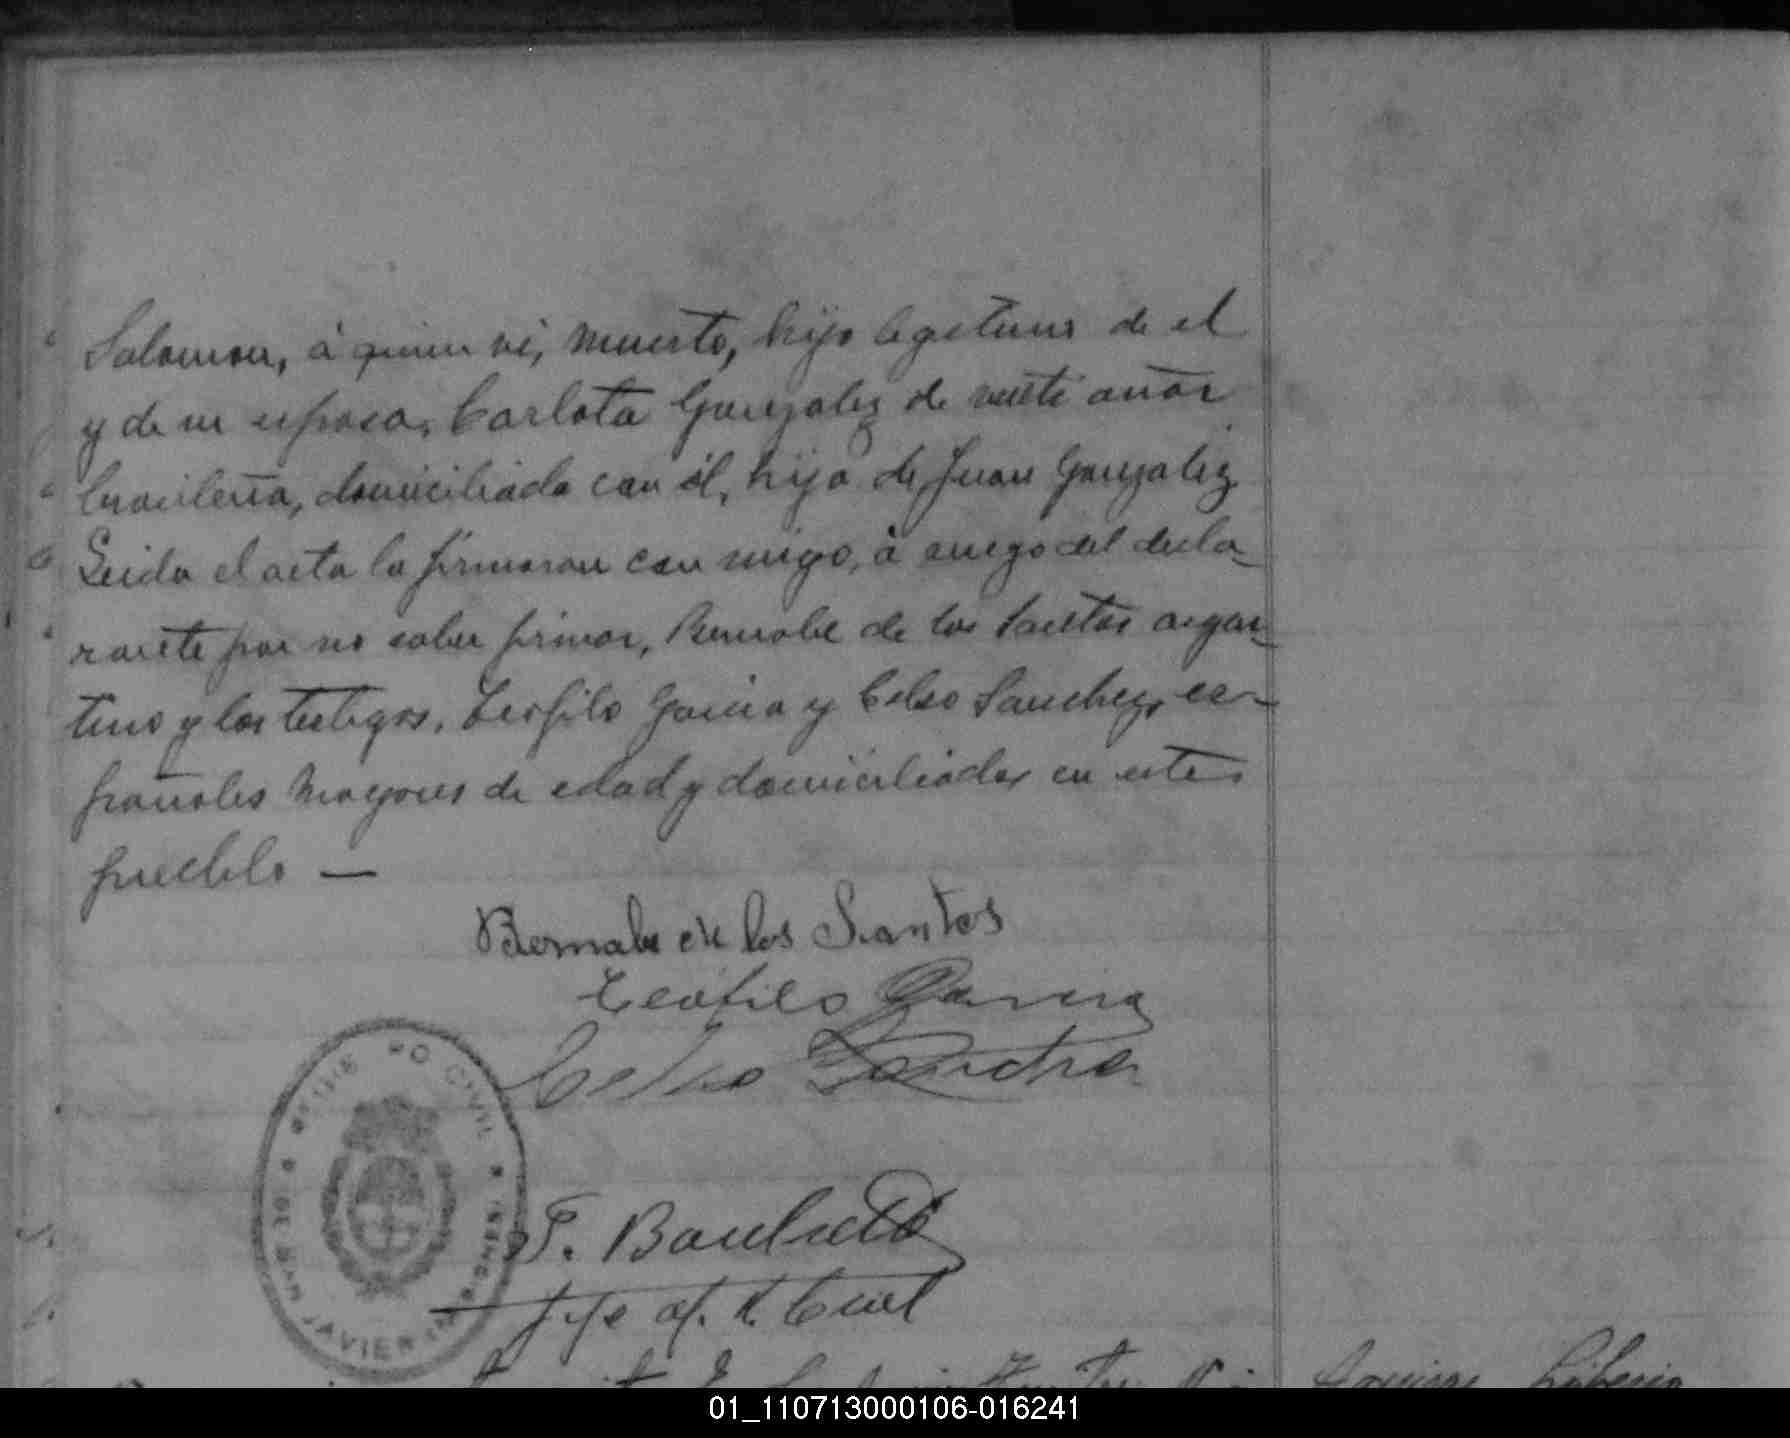 Salomon, á quien ví, muerto, hijo legitimo de el
y de su esposa, Carlota Gonzalez de veinte años
brasileña, domiciliada con él, hija de Juan Gonzalez
Leida el acta la firmaron con migo, á ruego del decla-
rante por no saber firmar, Bernabé de los Santos argen-
tino y los testigos, Teofilo Garcia y Celso Sanchez, es-
pañoles mayores de edad y domiciliados en este
pueblo —
Bernabe de los Santos
Teofilo Garcia
Celso Sanchez
REGISTRO CIVIL
DE SAN JAVIER MISIONES
Jefe of. R. Civil
01_110713000106-016241